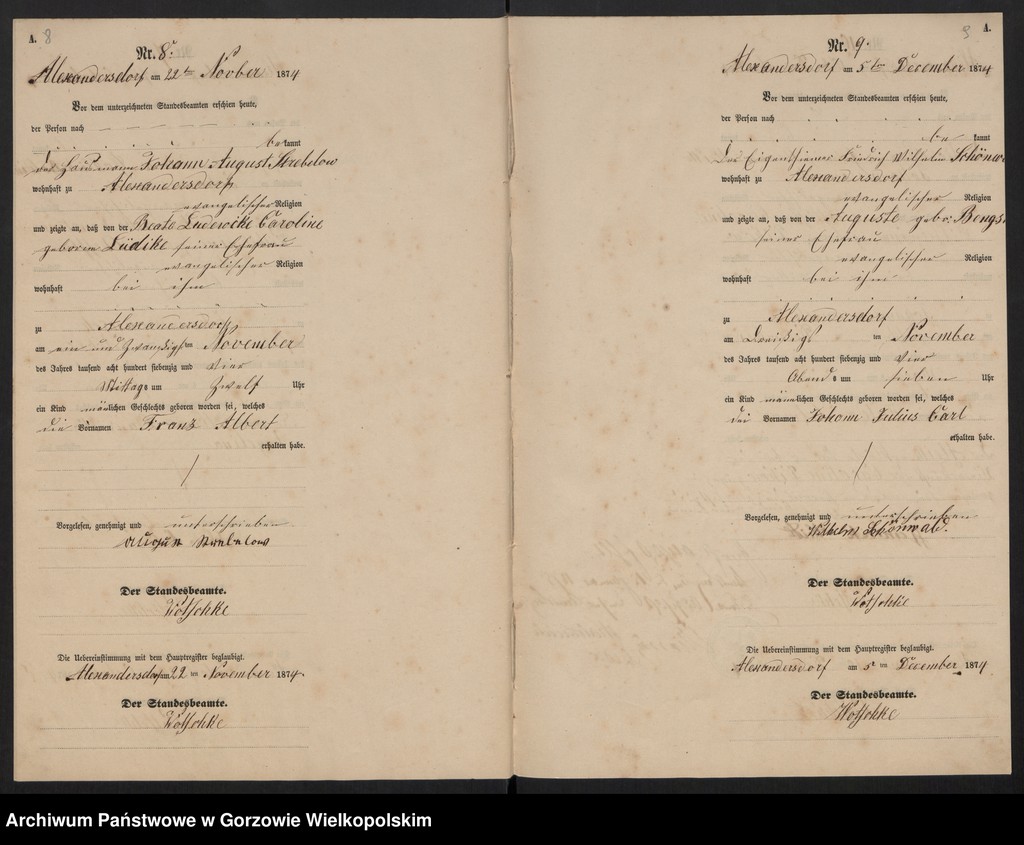 A. 8
Nr. 8.
Alexandersdorf am 22ten Novber 1874
Vor dem unterzeichneten Standesbeamten erschien heute,
der Person nach
be kannt
der Johann August Strebelow
wohnhaft zu Alexandersdorf
evangelischer Religion
und zeigte an, daß von der Beate Ludewicke Caroline
geborene Lüdike seiner Ehefrau
evangelischer Religion
wohnhaft bei ihm
zu Alexandersdorf
am ein und zwanzigsten November
des Jahres tausend acht hundert siebenzig und vier
Mittags um Zwelf Uhr
ein Kind männlichen Geschlechts geboren worden sei, welches
die Vornamen Franz Albert
erhalten habe.
Vorgelesen, genehmigt und unterschrieben
August Strebelow
Der Standesbeamte.
Wotschke
Die Uebereinstimmung mit dem Hauptregister beglaubigt.
Alexandersdorf am 22 ten November 1874.
Der Standesbeamte.
Wotschke
9 A.
Nr. 9.
Alexandersdorf am 5ten December 1874
Vor dem unterzeichneten Standesbeamten erschien heute,
der Person nach
be kannt
Der Eigenthümer Friedrich Wilhelm Schönw
wohnhaft zu Alexandersdorf
evangelischer Religion
und zeigte an, daß von der Auguste gebo. Bengs
seiner Ehefrau
evangelischer Religion
wohnhaft bei ihm
zu Alexandersdorf
am Dreißigs ten November
des Jahres tausend acht hundert siebenzig und vier
Abends um sieben Uhr
ein Kind männlichen Geschlechts geboren worden sei, welches
die Vornamen Johann Julius Carl
erhalten habe.
Vorgelesen, genehmigt und unterschrieben
Wilhelm Schönwald.
Der Standesbeamte.
Wotschke
Die Uebereinstimmung mit dem Hauptregister beglaubigt.
Alexandersdorf am 5 ten December 1874
Der Standesbeamte.
Wotschke
Archiwum Państwowe w Gorzowie Wielkopolskim